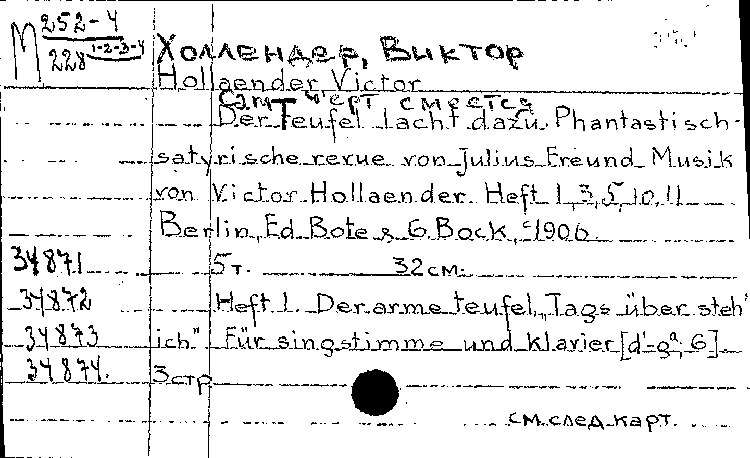 M 252-4
228 1-2-3-4
Холлендер, Виктор
Hollaender Victor
Сам чёрт смеется
Der teufel lacht dazu. Phantastisch-
satyrische revue von Julius Freund Musik
von Victor Hollaender. Heft 1, 3, 5, 10, 11
Berlin, Ed. Bote & G. Bock, c1906.
34871 5 т. 32 см.
34872 Heft 1. Der arme teufel, „Tags über steh'
34873 ich" Für singstimme und klavier [d'-g²; G]
34874. 3 стр
см. след. карт.